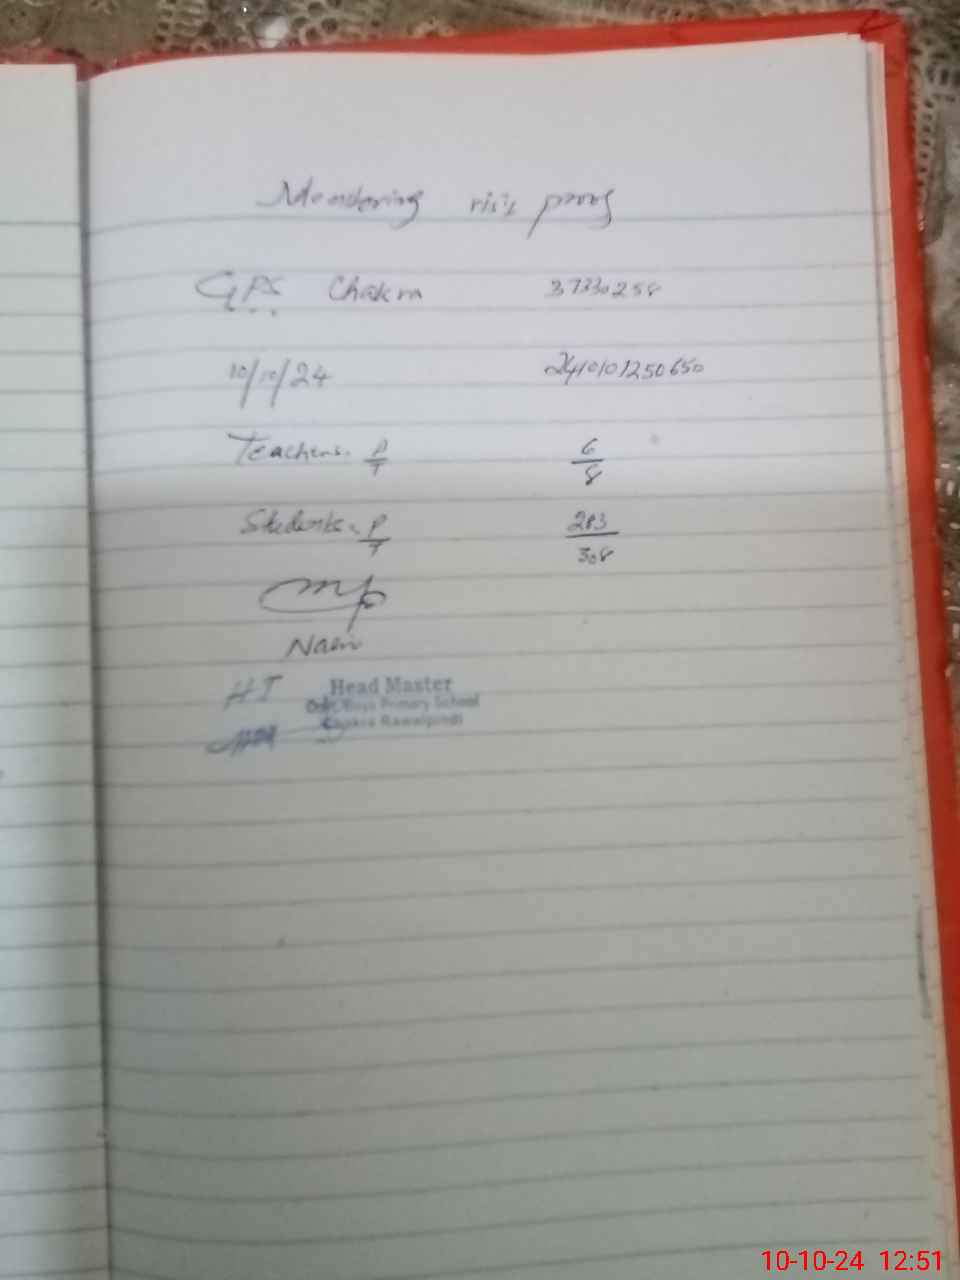 Monitoring visit proof
GPS Chakra 37330258
10/10/24 2410101250650
Teachers. P/T 6/8
Students. P/T 283/308
Naeem
HT Head Master
Govt. Boys Primary School
Chakra Rawalpindi
10-10-24 12:51